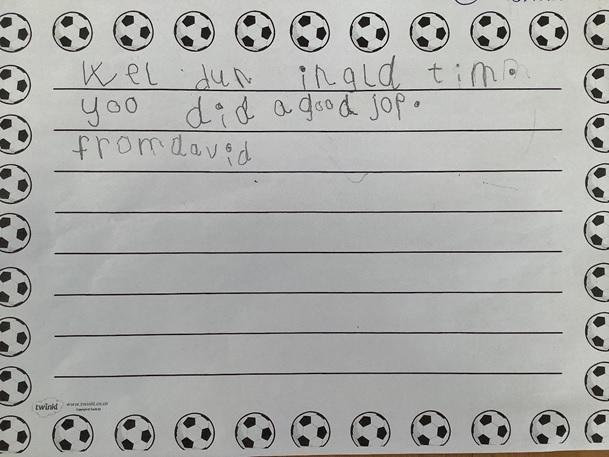 wel dun ingld tim.
yoo did a good jop.
from david
twinkl www.twinkl.co.uk